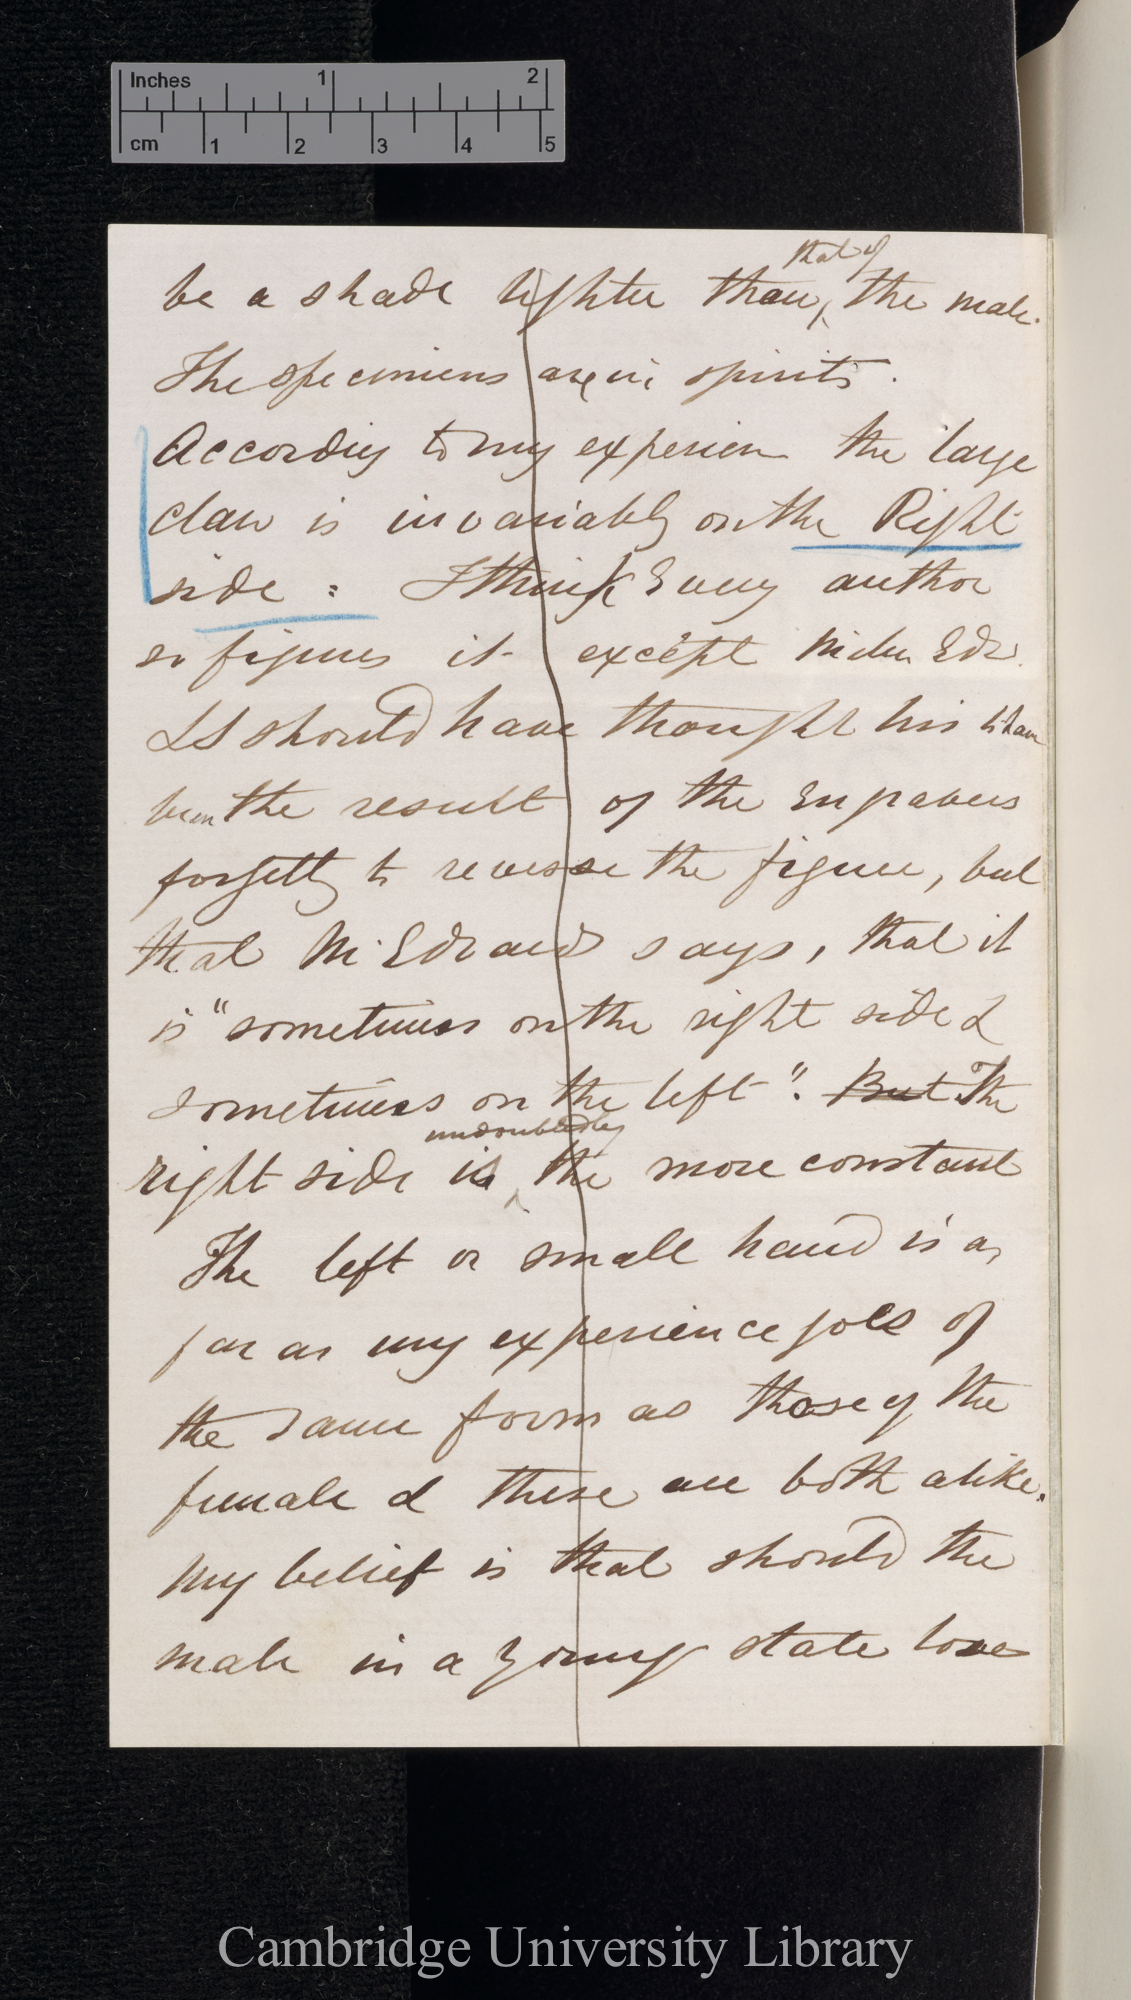 Inches 1 2
cm 1 2 3 4 5
be a shade lighter than that of the male.
The specimens are in spirits.
According to my experien the large
claw is invariably on the Right
side: I think Every author
so figures it except Milne Edw.
& I should have thought his to have
been the result of the Engravers
forgettg to reverse the figure, but
that M. Edwards says, that it
is "sometimes on the right side &
sometimes on the left". But The
right side is undoubtedly the more constant
The left or small hand is as
far as my experience goes of
the same form as those of the
female & these are both alike.
My belief is that should the
male in a young state lose
Cambridge University Library